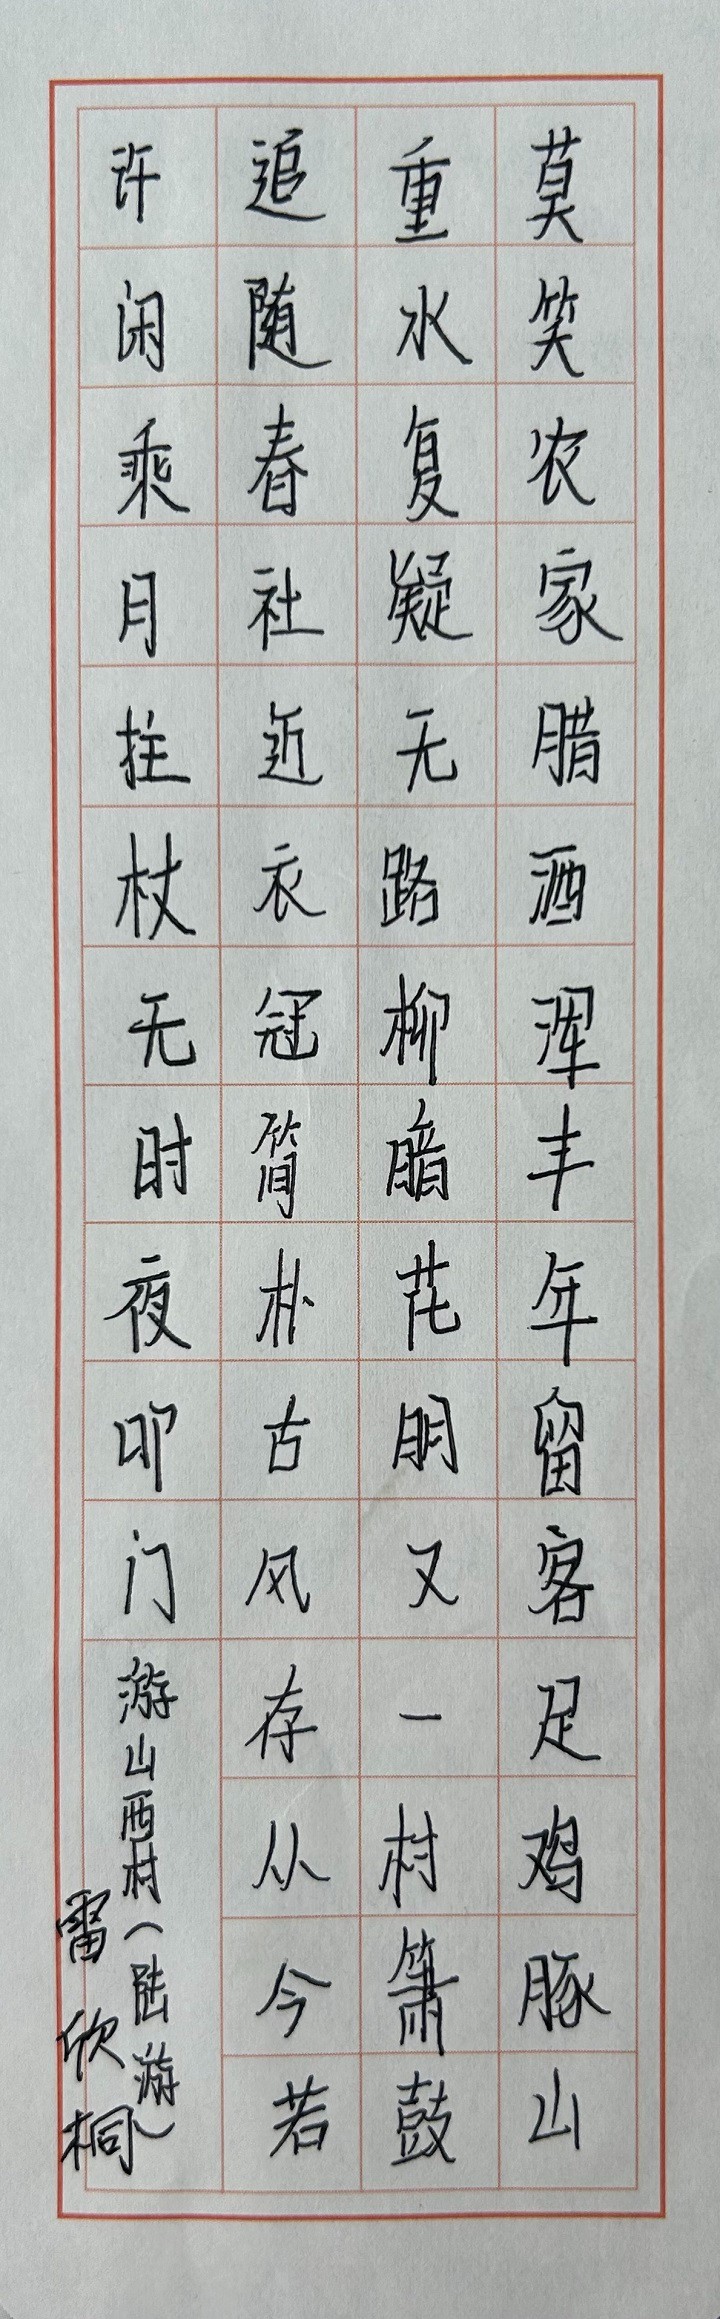 莫笑农家腊酒浑丰年留客足鸡豚山
重水复疑无路柳暗花明又一村箫鼓
追随春社近衣冠简朴古风存从今若
许闲乘月拄杖无时夜叩门
游山西村（陆游）
雷欣桐